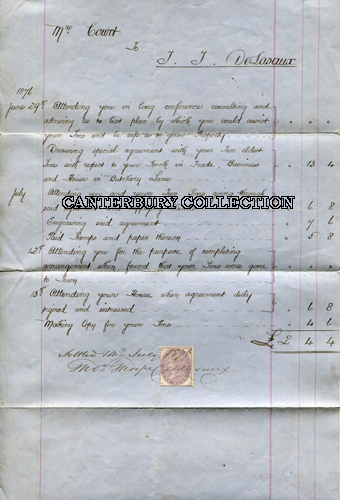 Mrs Court
To
T. T. DeLasaux
1876
June 29th Attending you in long conference consulting and
advising as to best plan by which you could assist
your Sons and be safe as to your Property
Drawing special agreement with your two eldest
Sons with respect to your Stock in Trade, Business
and House in Butchery Lane " 13 4
July Attending you and your two Sons going through
said
CANTERBURY COLLECTION
" 6 8
Engrossing said agreement " 7 6
Paid Stamps and paper thereon " 5 8
12th Attending you for the purpose of completing
arrangement when found that your Sons were gone
to Town
13th Attending your House when agreement duly
signed and witnessed " 6 8
Making Copy for your Sons " 4 6
£ 2 4 4
Settled 14th July
Thos Thorpe